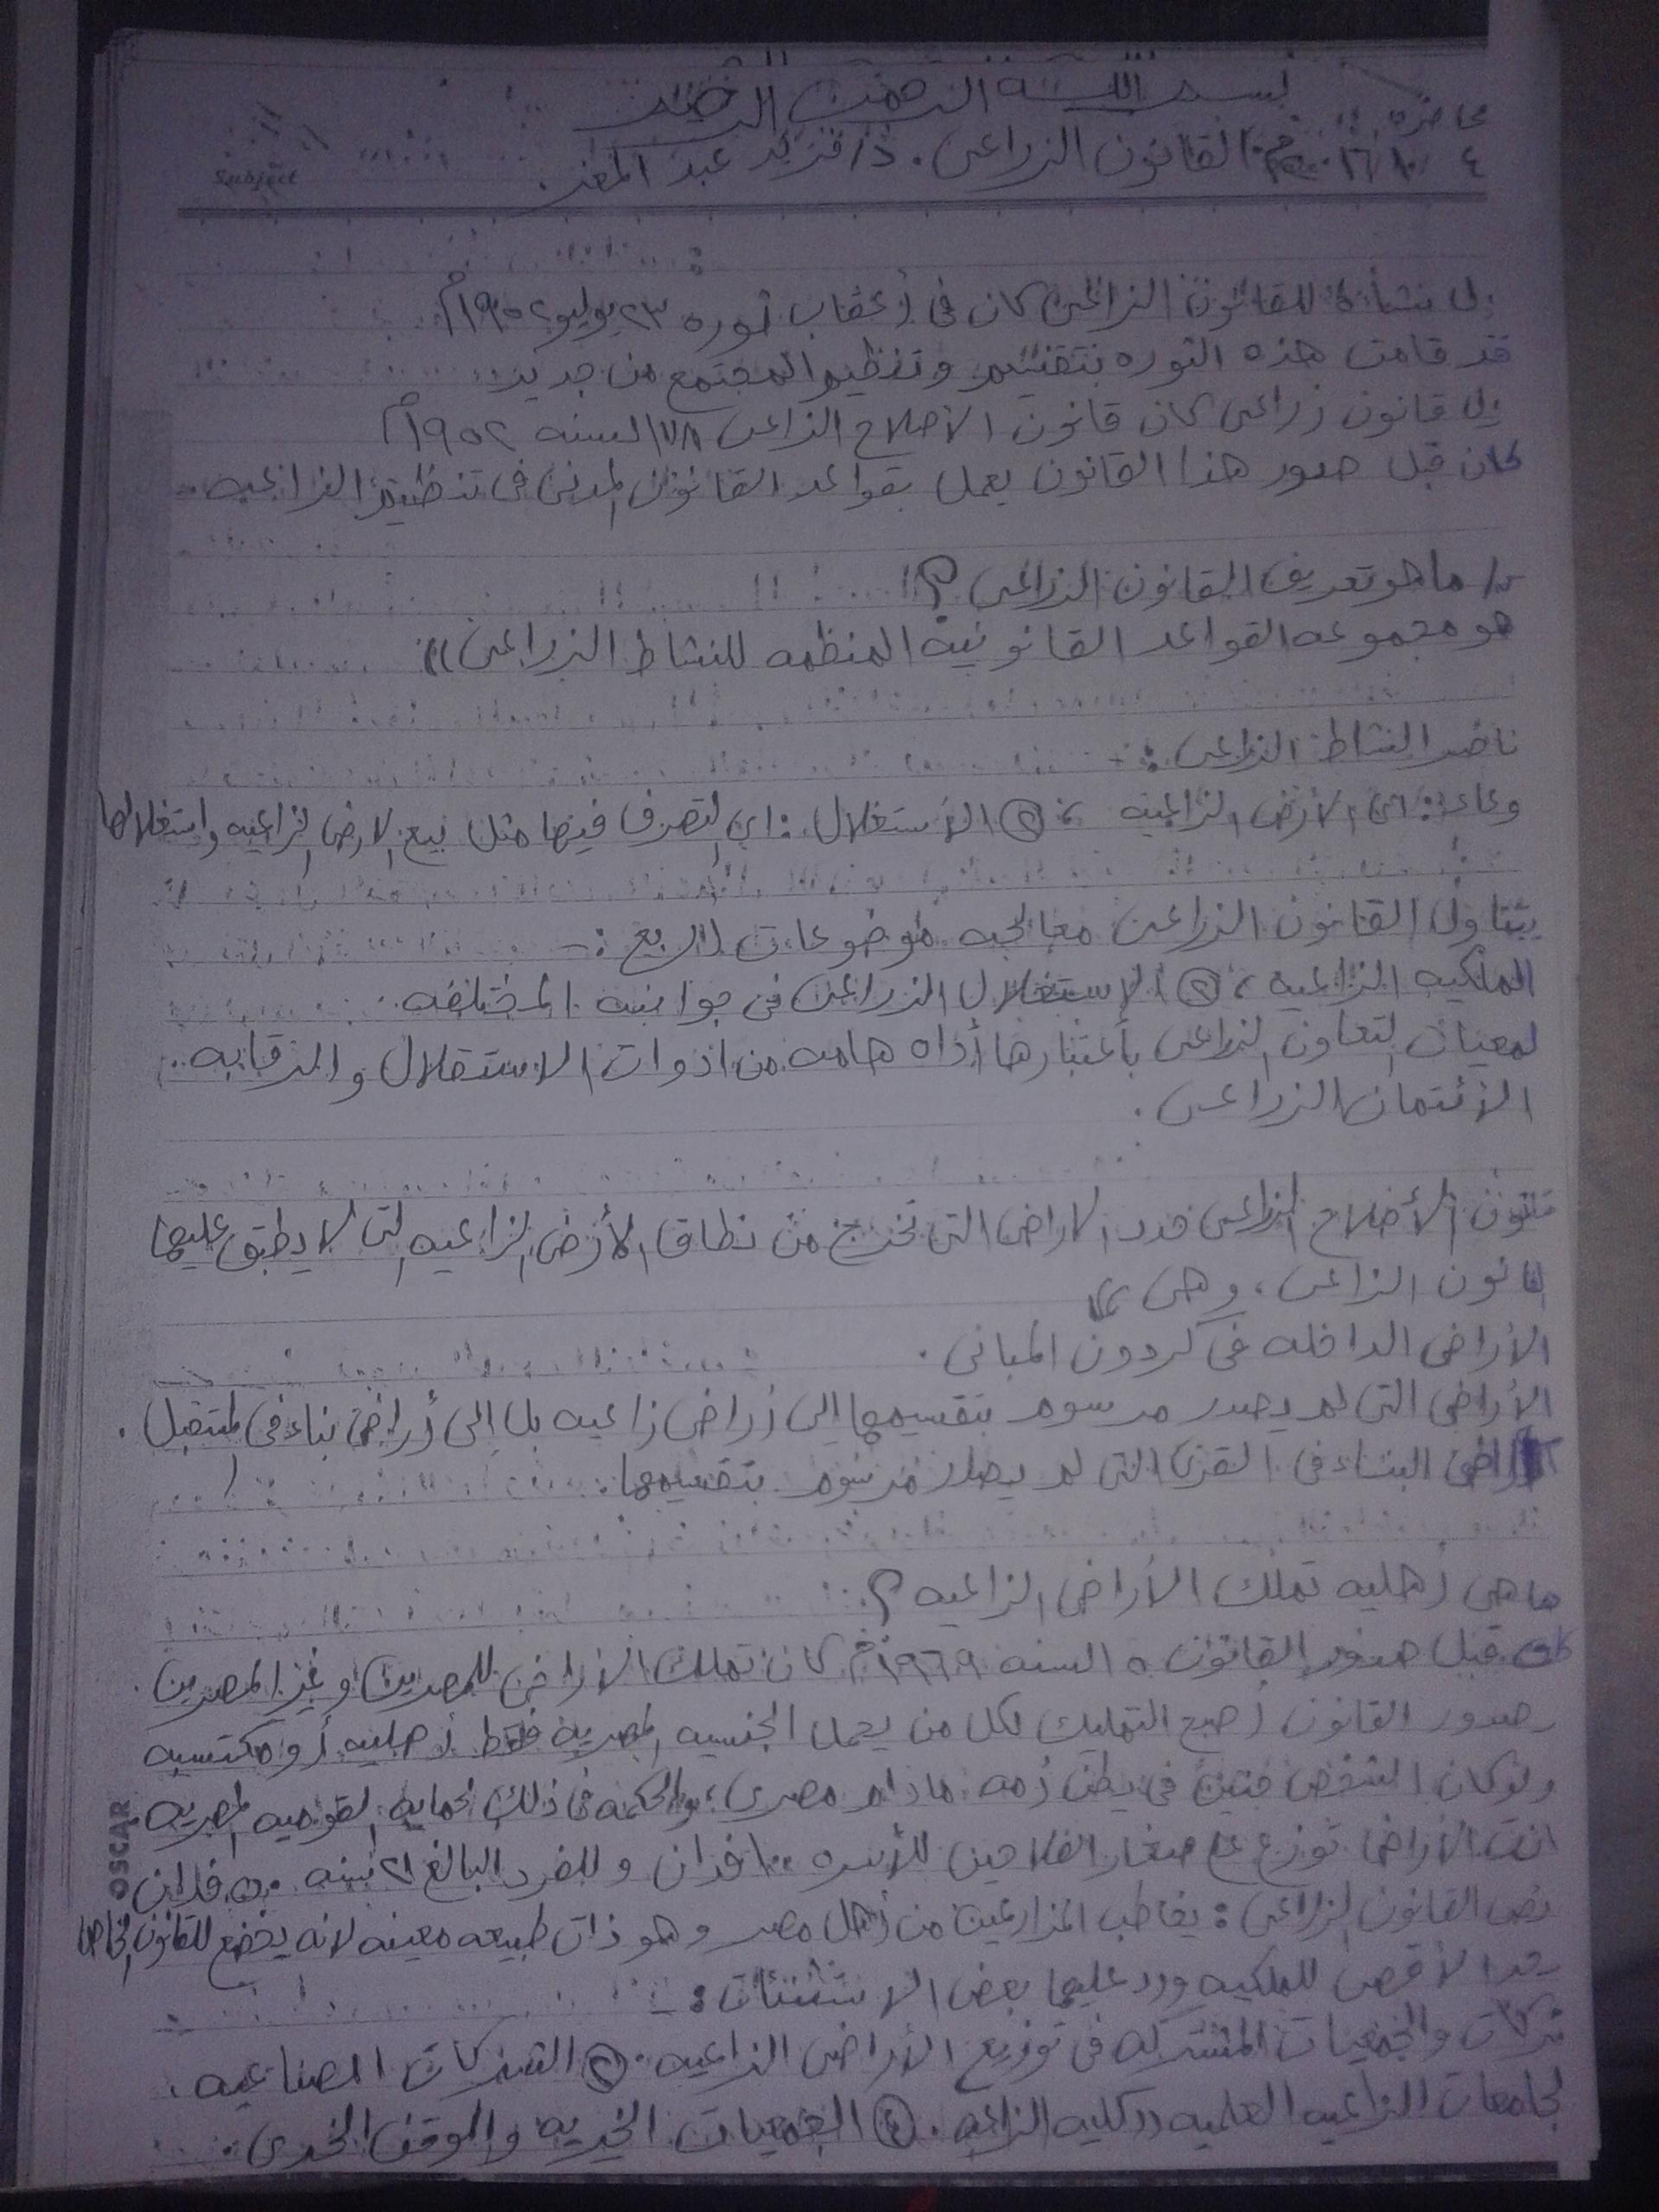 بسم الله الرحمن الرحيم
محاضرة
القانون الزراعى . د/ فريد عبد المعز .
Subject
نشأة للقانون الزراعى كان فى أعقاب ثوره ٢٣ يوليو ١٩٥٢م
قد قامت هذه الثوره بتقنين وتنظيم المجتمع من جديد
قانون زراعى كان قانون الاصلاح الزراعى ١٧٨ لسنه ١٩٥٢م
كان قبل صدور هذا القانون يعمل بقواعد القانون المدنى فى تنظيم الزراعيه
س/ ما هو تعريف القانون الزراعى ؟
هو مجموعه القواعد القانونية المنظمه للنشاط الزراعى ))
ناصر النشاط الزراعى :
وعاء : اى الأرض الزراعية ، ② الأستغلال : اى التصرف فيها مثل بيع الارض الزراعيه واستغلالها
يتناول القانون الزراعى معالجه موضوعات اربع :-
الملكيه الزراعيه ، ② الإستغلال الزراعى فى جوانبه المختلفه .
لمعيات التعاون الزراعى بأعتبارها أداه هامه من ادوات الاستقلال والرقابه ..
الأئتمان الزراعى .
قانون الأصلاح الزراعى حدد الاراضى التى تخرج من نطاق الأرض الزراعيه التى لا يطبق عليها
انون الزراعى ، وهى
الأراضى الداخله فى كردون المبانى .
الأراضى التى لم يصدر مرسوم بتقسيمها إلى أراضى زراعيه بل إلى أراضى بناء فى المستقبل .
اراضى البناء فى القرى التى لم يصدر مرسوم بتقسيمها .
ما هى أهليه تملك الأراضى الزراعيه ؟
قبل صدور القانون ١٥ لسنه ١٩٦٩م كان تملك الأراضى للمصريين وغير المصريين .
صدور القانون أصبح التمليك لكل من يحمل الجنسيه المصريه فقط أصليه أو مكتسبه
ولو كان الشخص جنين فى بطن أمه مادام مصرى ، والحكمه فى ذلك لحمايه القوميه المصريه .
انت الأراضى توزع على صغار الفلاحين للأسره ١٠٠ فدان وللفرد البالغ ٢١ سنه ٥٠ فدان
نص القانون الزراعى : يخاطب المزارعين من أهل مصر وهو ذات طبيعه معينه لانه يخضع للقانون الخاص
حد الأقصى للملكيه ورد عليها بعض الاستثنئات :-
شركات والجمعيات المشتركه فى توزيع الأراضى الزراعيه . ② الشركات الصناعيه .
لجامعات الزراعيه العلميه (( كليه الزراعه . ④ الجمعيات الخيريه والوقف الخيرى .
OSCAR